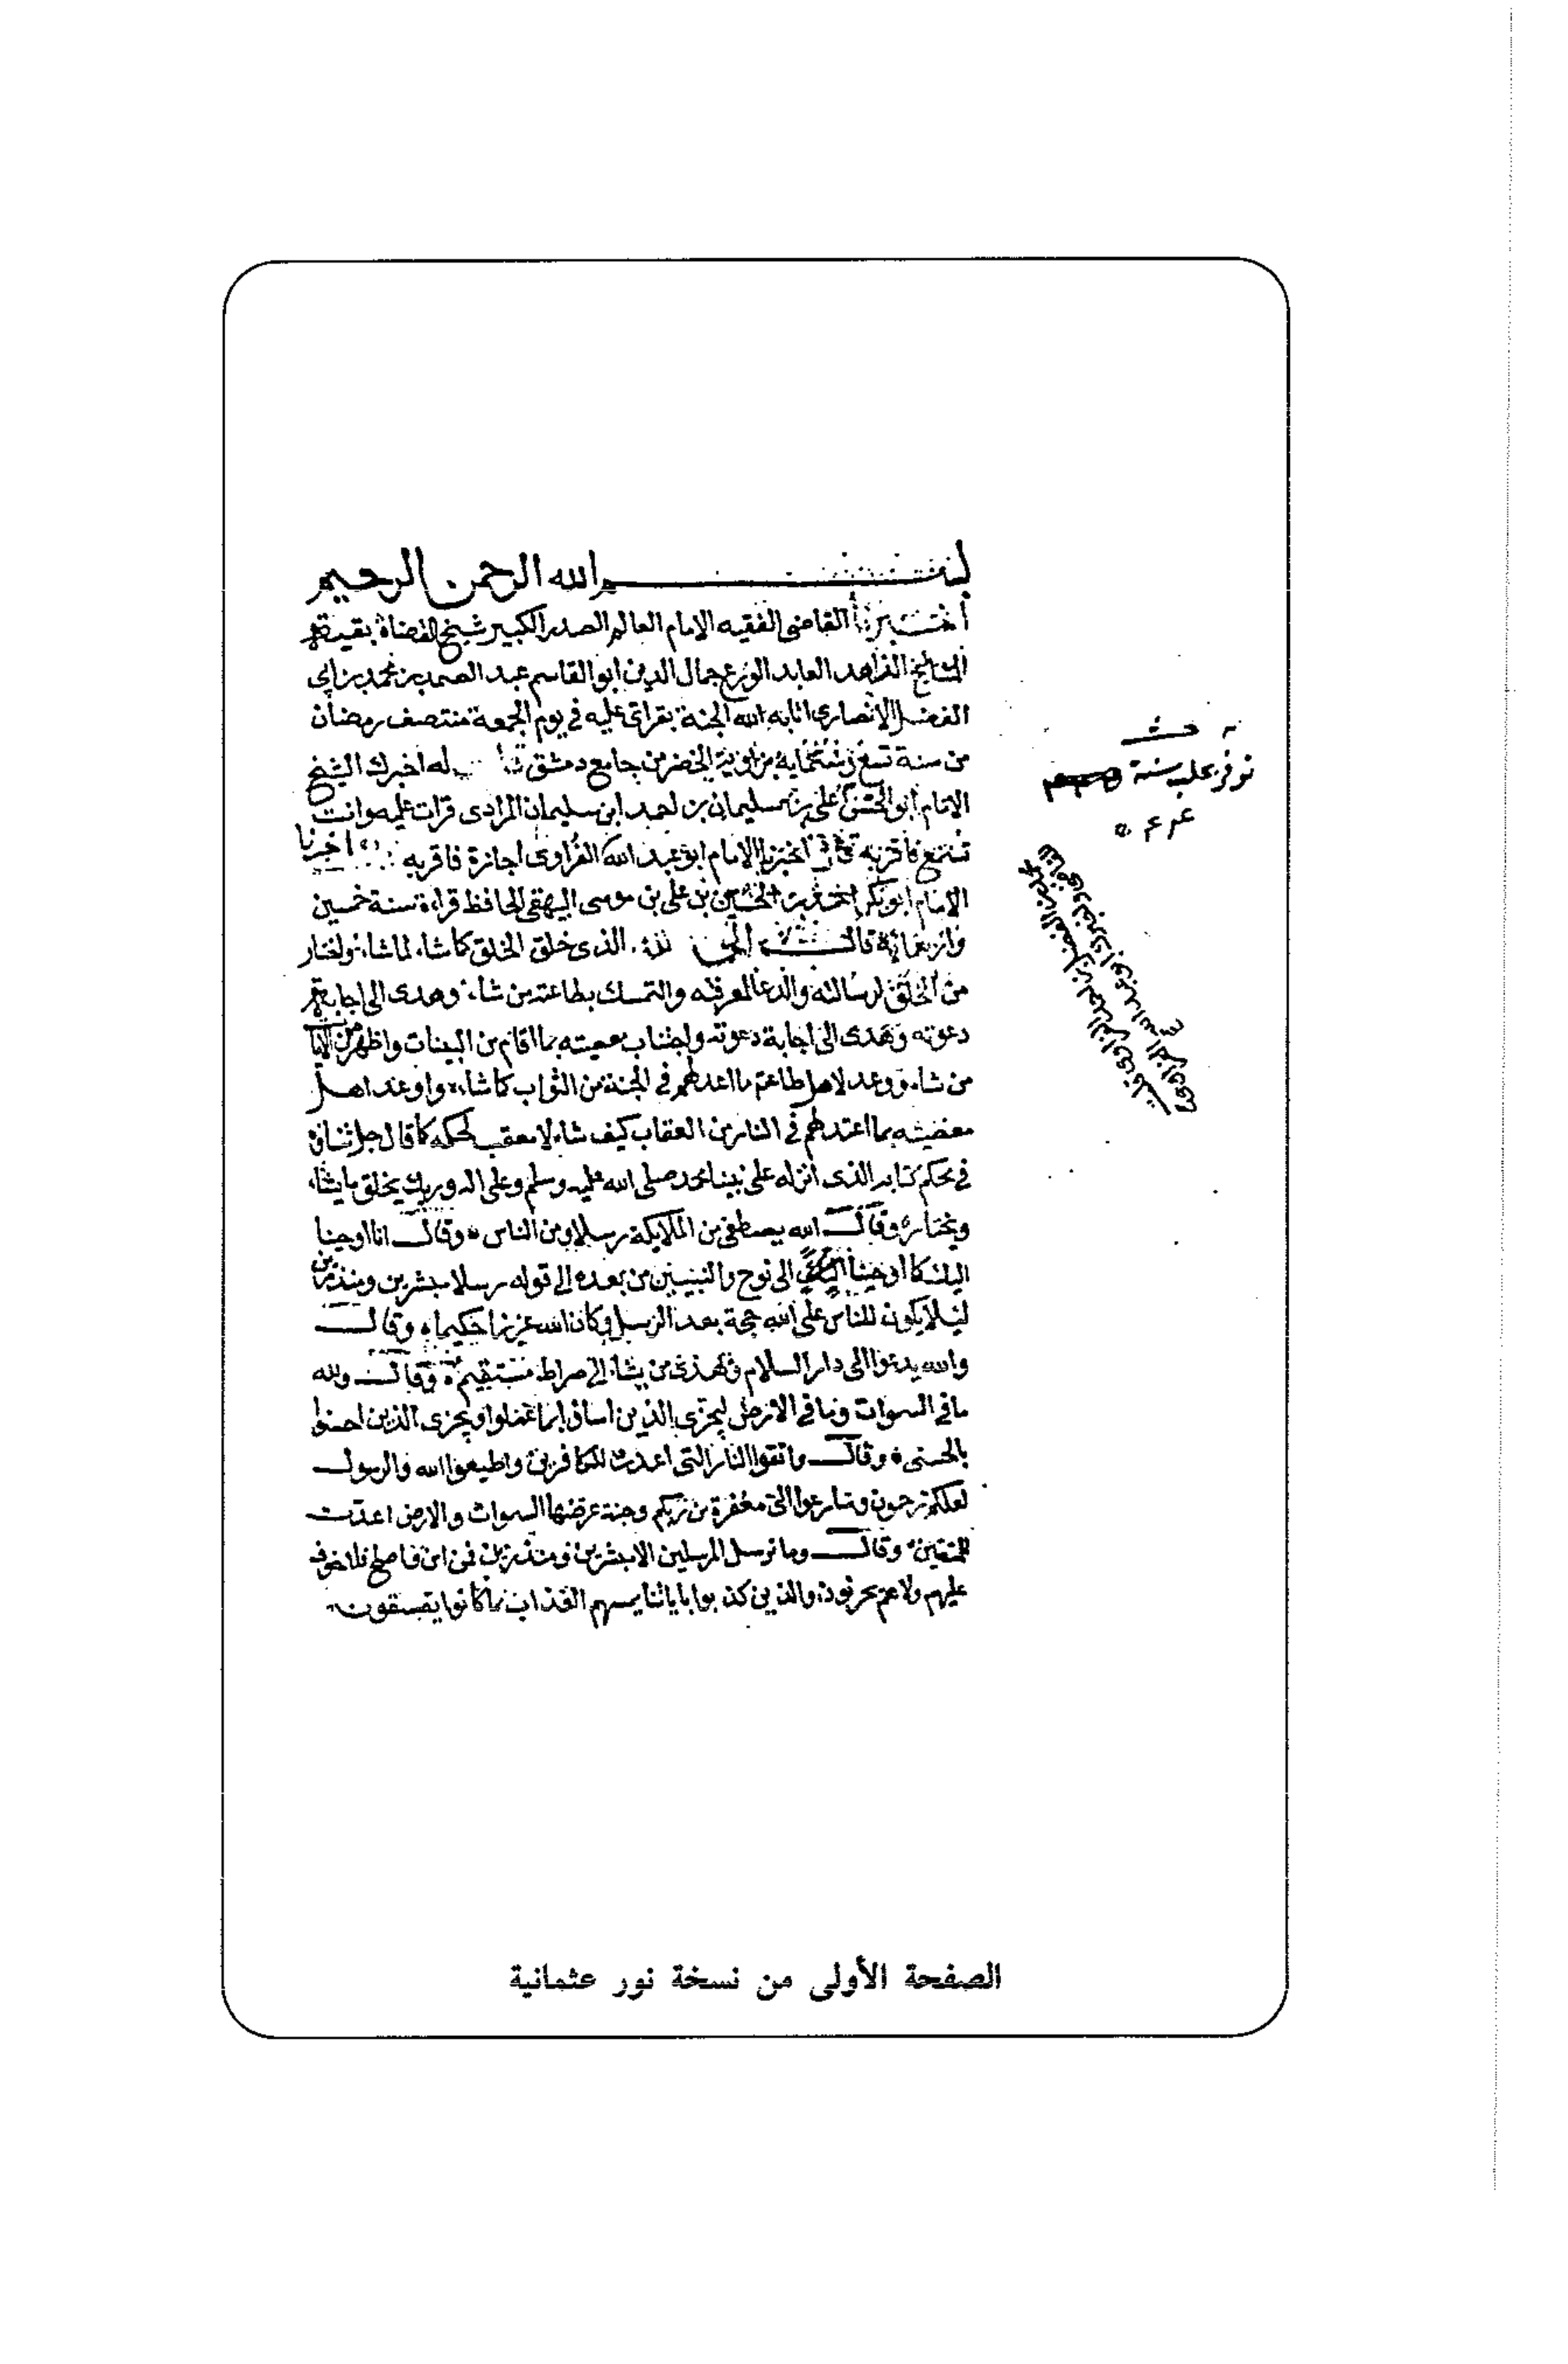 بسم الله الرحمن الرحيم
أخبرنا القاضي الفقيه الامام العالم الصدر الكبير شيخ القضاة بقية
المشايخ الزاهد العابد الورع جمال الدين ابو القاسم عبد الصمد بن محمد بن ابي
الفضل الانصاري اثابه الله الجنة بقراتي عليه في يوم الجمعة منتصف رمضان
من سنة تسع وستمائة بزاوية الخضر من جامع دمشق له اخبرك الشيخ
الامام ابو الحسن علي بن سليمان بن احمد ابن سليمان المرادي قراة عليه وانت
تسمع فاقر به اخبرنا الامام ابو عبد الله الفراوي اجازة فاقر به اخبرنا
الامام ابو بكر احمد بن الحسين بن علي بن موسى البيهقي الحافظ قراءة سنة خمسين
واربعمائة قال الحمد لله الذي خلق الخلق كما شاء لما شاء واختار
من الخلق لرسالته والدعا لمعرفته والتمسك بطاعته من شاء وهدى الى اجابة
دعوته وهدى الى اجابة دعوته واجتناب معصيته بما اقام من البينات واظهر من الايات
من شاء ووعد لاهل طاعته ما اعد لهم في الجنة من الثواب كما شاء واوعد اهل
معصيته بما اعتد لهم في النار من العقاب كيف شاء لا معقب لحكمه كما قال جل ثناؤه
في محكم كتابه الذي انزله على نبينا محمد صلى الله عليه وسلم وعلى اله وربك يخلق ما يشاء
ويختار وقال الله يصطفي من الملايكة رسلا ومن الناس وقال انا اوحينا
اليك كما اوحينا الى نوح والنبيين من بعده الى قوله رسلا مبشرين ومنذرين
ليلا يكون للناس على الله حجة بعد الرسل وكان الله عزيزا حكيما وقال
والله يدعوا الى دار السلام ويهدي من يشاء الى صراط مستقيم وقال ولله
ما في السموات وما في الارض ليجزي الذين اساؤا بما عملوا ويجزي الذين احسنوا
بالحسنى وقال واتقوا النار التي اعدت للكافرين واطيعوا الله والرسول
لعلكم ترحمون وسارعوا الى مغفرة من ربكم وجنة عرضها السموات والارض اعدت
للمتقين وقال وما نرسل المرسلين الا مبشرين ومنذرين فمن امن واصلح فلا خوف
عليهم ولا هم يحزنون والذين كذبوا باياتنا يمسهم العذاب بما كانوا يفسقون
توفي بحلب سنة
الصفحة الأولى من نسخة نور عثمانية